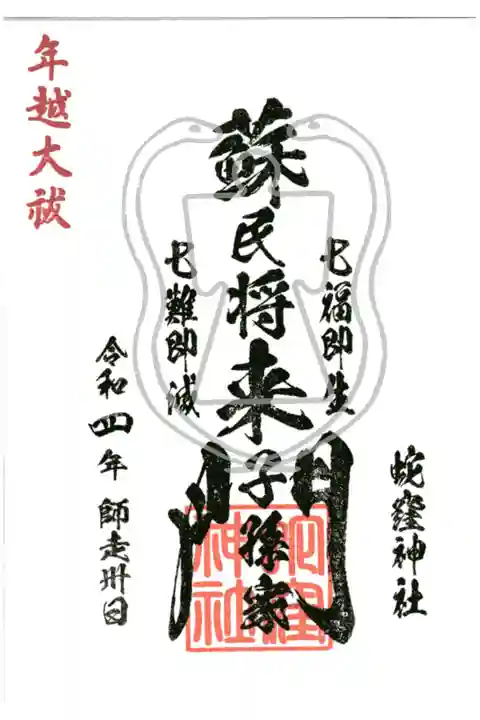 蛇窪神社
七福即生
蘇民将来子孫家門
七難即滅
年越大祓
令和四年師走卅日
蛇窪神社